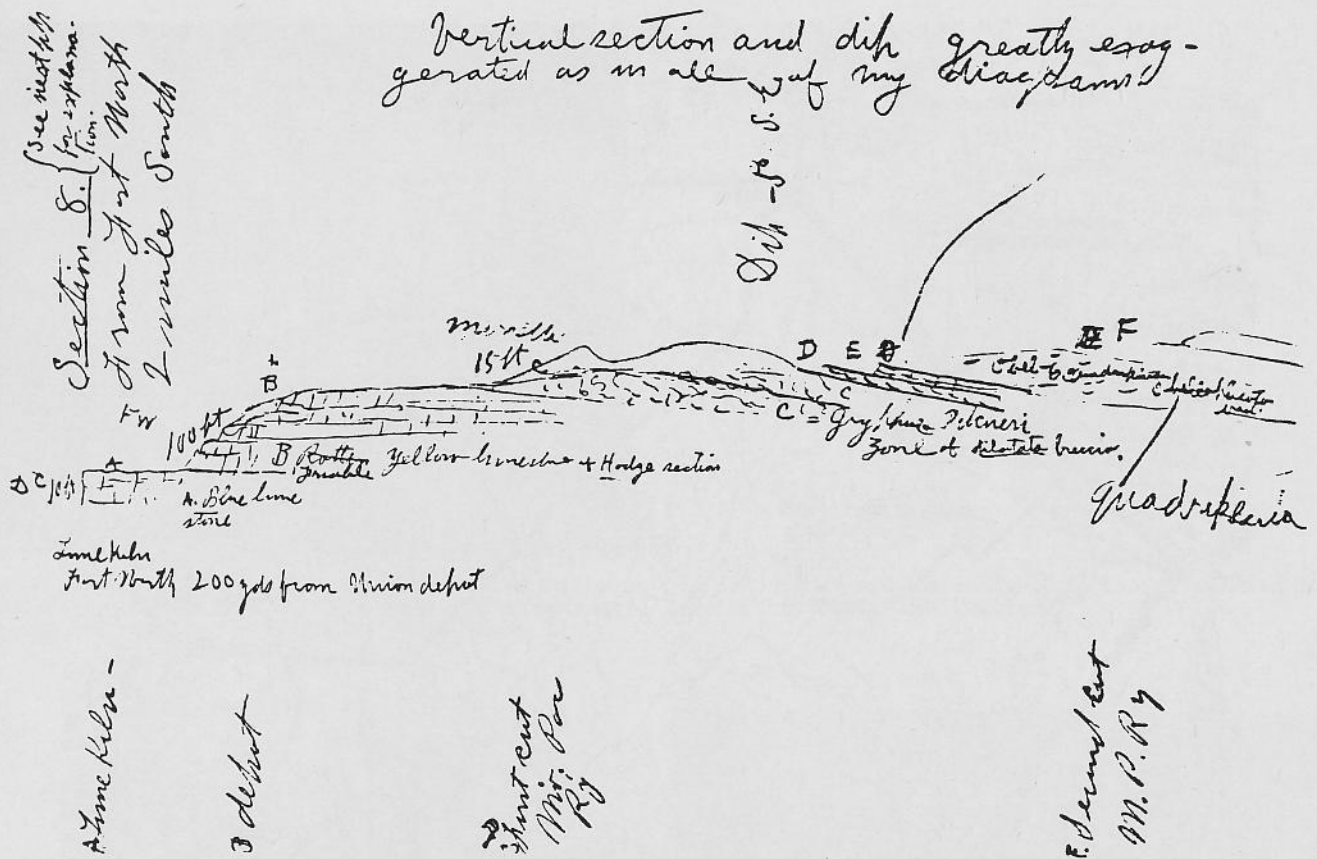 Vertical section and dip greatly exag-
gerated as in all of my diagrams
Section 8. {See next pp
for explana-
tion.
From Fort Worth
2 miles South
Dip - S. E
15 ft
D E
F
B
F W
100 ft
C
C = Gryphaea Pitcheri
Zone & dilatata breccia.
B Rotten Yellow limestone & Hodge section
friable
A
D C 10 ft
A. Blue lime
stone
quadriplicata
Lime Kiln
Fort Worth 200 yds from Union depot
A Lime Kiln -
B depot
First cut
Mo. Pac
Ry
F. Second Cut
M. P. Ry